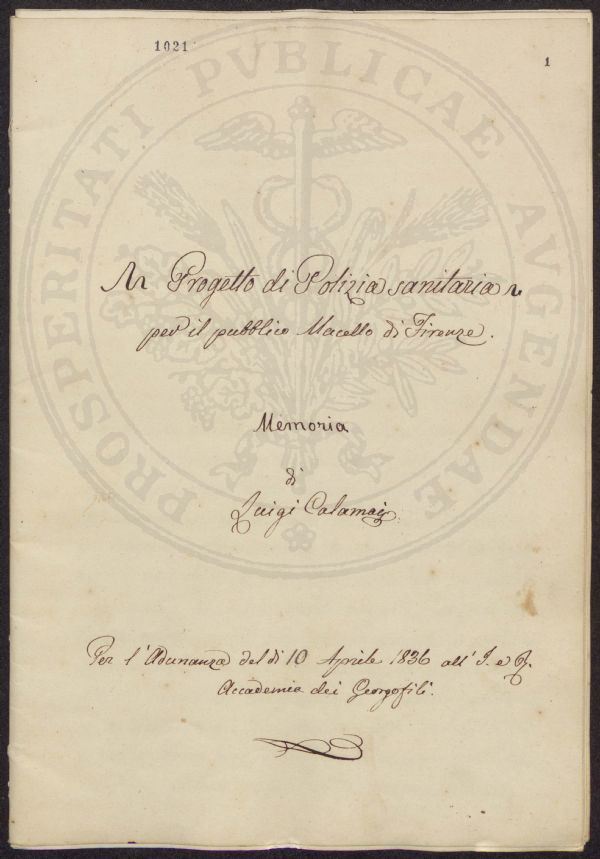 1021
1
PROSPERITATI PUBLICAE AUGENDAE
Un Progetto di Polizia sanitaria
per il pubblico Macello di Firenze.
Memoria
di
Luigi Calamai
Per l'Adunanza del dì 10 Aprile 1836 all' I. e R.
Accademia dei Georgofili.